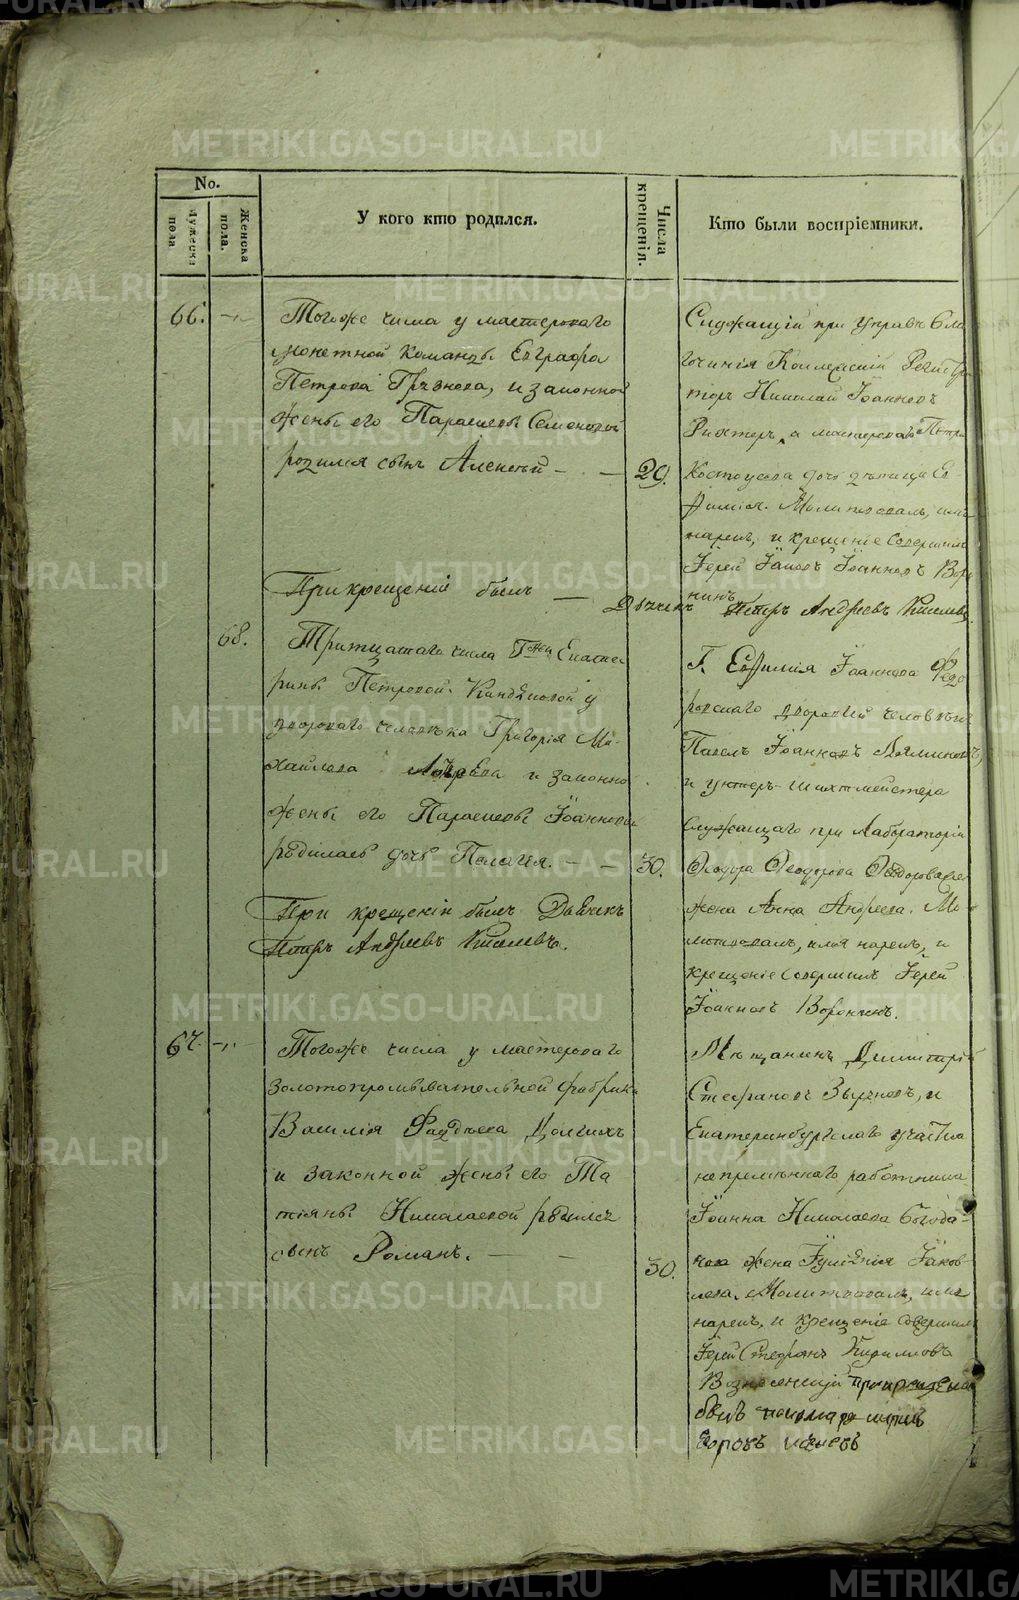 No.
Мужеска пола.
Женска пола.
У кого кто родился.
Числа крещенія.
Кто были воспріемники.
66.
Тогоже числа у мастероваго
монетной команды Евграфа
Петрова, и законной
жены его Параскевы Семеновой
родился сынъ Алексѣй
29.
Служащій при Управѣ Бла
гочинія Коллежскій Регистра
торъ Николай Іоанновъ
Рихтеръ, а мастероваго Петра
Костоусова дочь дѣвица Ев
фимія. Молитвовалъ, имя
нарекъ, и крещеніе совершилъ
Іерей Іоаннъ Воро
нинъ
При крещеніи былъ — Дьячекъ Петръ Андреевъ Киселевъ
68.
Тритцатаго числа Г-жи Екате
рины Петровой у
двороваго человѣка Григорія Ми-
хайлова и законной
жены его Параскевы Іоанновой
родилась дочь Пелагія.
30.
Г. Евфимія Іоаннова Федо
ровскаго дворовый человѣкъ
Павелъ Іоанновъ
и унтеръ-шихтмейстера
служащаго при Лабораторіи
Ѳеодора Ѳеодорова
жена Анна Андреева. Мо
литвовалъ, имя нарекъ, и
крещеніе совершилъ Іерей
Воронинъ.
При крещеніи былъ Дьячекъ
Петръ Андреевъ Киселевъ.
67.
Тогоже числа у мастероваго
золотопромывательной фабрики
Василія Фаддѣева Долгихъ
и законной жены его Та
тіяны Николаевой родился
сынъ Романъ.
30.
Мѣщанинъ Димитрій
Стефановъ и
Екатеринбургскаго участка
непремѣннаго работника
Іоанна Николаева Богода-
жена Іуліянія Іаков-
лева. Молитвовалъ, имя
нарекъ, и крещеніе совершилъ
Іерей Стефанъ Кирилловъ
Вознесенскій при крещеніи
былъ пономарь
METRIKI.GASO-URAL.RU